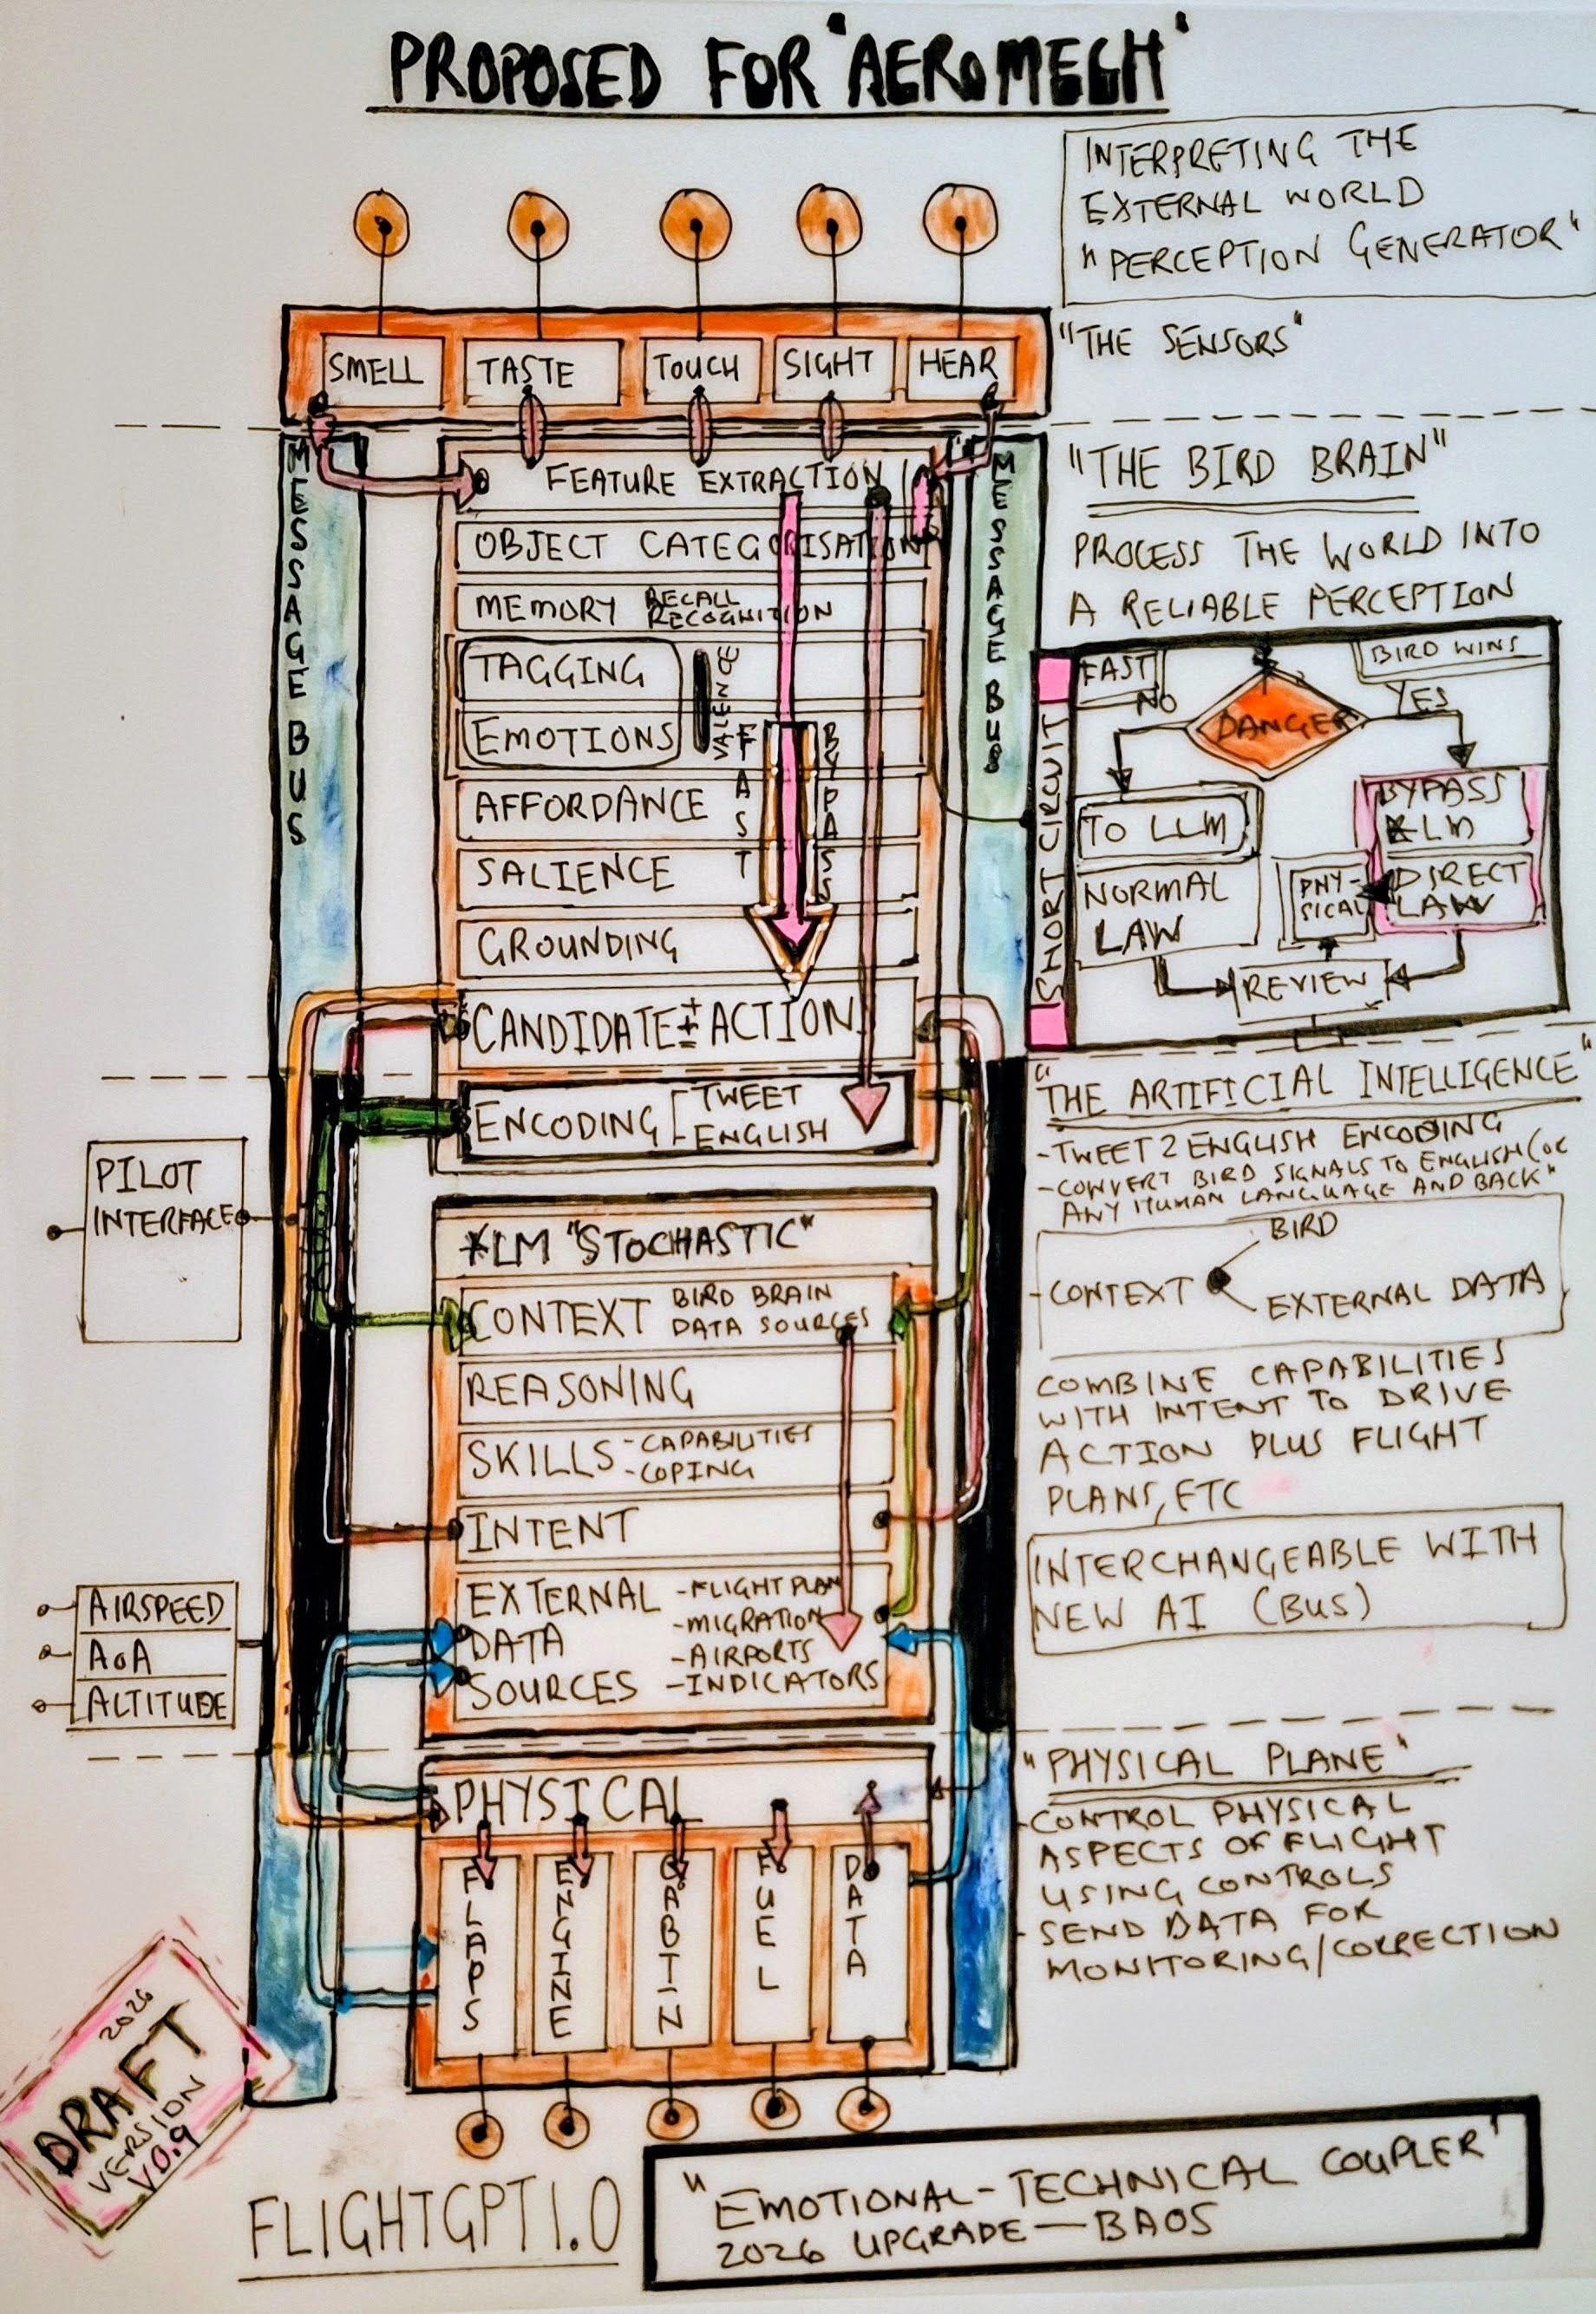 PROPOSED FOR "AEROMECH"
INTERPRETING THE
EXTERNAL WORLD
"PERCEPTION GENERATOR"
"THE SENSORS"
SMELL
TASTE
TOUCH
SIGHT
HEAR
MESSAGE BUS
MESSAGE BUS
FEATURE EXTRACTION
OBJECT CATEGORISATION
MEMORY RECALL
RECOGNITION
TAGGING
EMOTIONS
VALENCE
FAST
BYPASS
AFFORDANCE
SALIENCE
GROUNDING
CANDIDATE ± ACTION
ENCODING
TWEET
ENGLISH
"THE BIRD BRAIN"
PROCESS THE WORLD INTO
A RELIABLE PERCEPTION
SHORT CIRCUIT
FAST
BIRD WINS
NO
DANGER
YES
TO LLM
NORMAL
LAW
BYPASS
LM
DIRECT
LAW
PHY-
SICAL
REVIEW
"THE ARTIFICIAL INTELLIGENCE"
-TWEET 2 ENGLISH ENCODING
-CONVERT BIRD SIGNALS TO ENGLISH (OR
ANY HUMAN LANGUAGE AND BACK"
BIRD
-CONTEXT
EXTERNAL DATA
COMBINE CAPABILITIES
WITH INTENT TO DRIVE
ACTION PLUS FLIGHT
PLANS, ETC
INTERCHANGEABLE WITH
NEW AI (BUS)
PILOT
INTERFACE
*LM "STOCHASTIC"
CONTEXT BIRD BRAIN
DATA SOURCES
REASONING
SKILLS -CAPABILITIES
-COPING
INTENT
EXTERNAL -FLIGHT PLAN
DATA -MIGRATION
-AIRPORTS
SOURCES -INDICATORS
AIRSPEED
AoA
ALTITUDE
PHYSICAL
FLAPS
ENGINE
CABIN
FUEL
DATA
"PHYSICAL PLANE"
-CONTROL PHYSICAL
ASPECTS OF FLIGHT
USING CONTROLS
-SEND DATA FOR
MONITORING/CORRECTION
2026
DRAFT
VERSION
V0.9
FLIGHTGPT1.0
"EMOTIONAL-TECHNICAL COUPLER"
2026 UPGRADE—BAOS